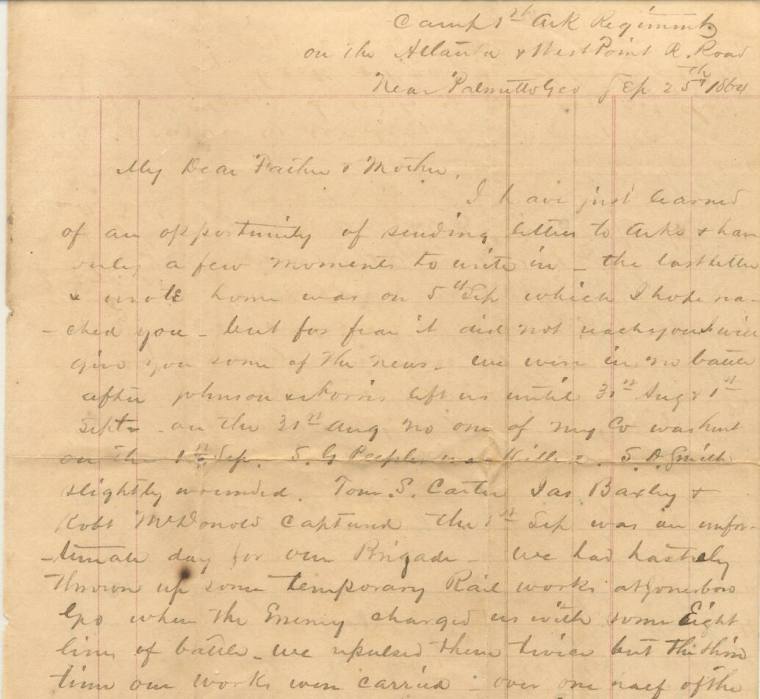 Camp 1st Ark Regiment
on the Atlanta & West Point R. Road
Near Palmetto Geo Sep 25th 1864
My Dear Father & Mother,
I have just learned
of an opportunity of sending letters to Arks & have
only a few moments to write in - the last letter
I wrote home was on 5th Sep which I hope rea-
-ched you - but for fear it did not reach you I will
give you some of the news. we were in no battle
after Johnson & left us until 31st Aug & 1st
Sept - on the 31st Aug no one of my Co was hurt
on the 1st Sep. S. G Peeples was Killed. S. A. Smith
slightly wounded. Tom. S. Carter Jas Baxley &
Robt McDonold Captured the 1st Sep was an unfor-
-tunate day for our Brigade - we had hastely
thrown up some temporary Rail works at Jonesboro
Geo when the Enemy charged us with some Eight
lines of battle - we repulsed them twice but the third
time our works were carried - over one half of the